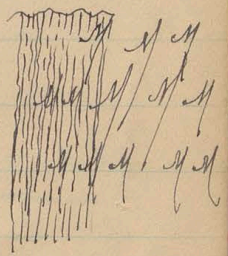 M M M
M M M M M
M M M M M